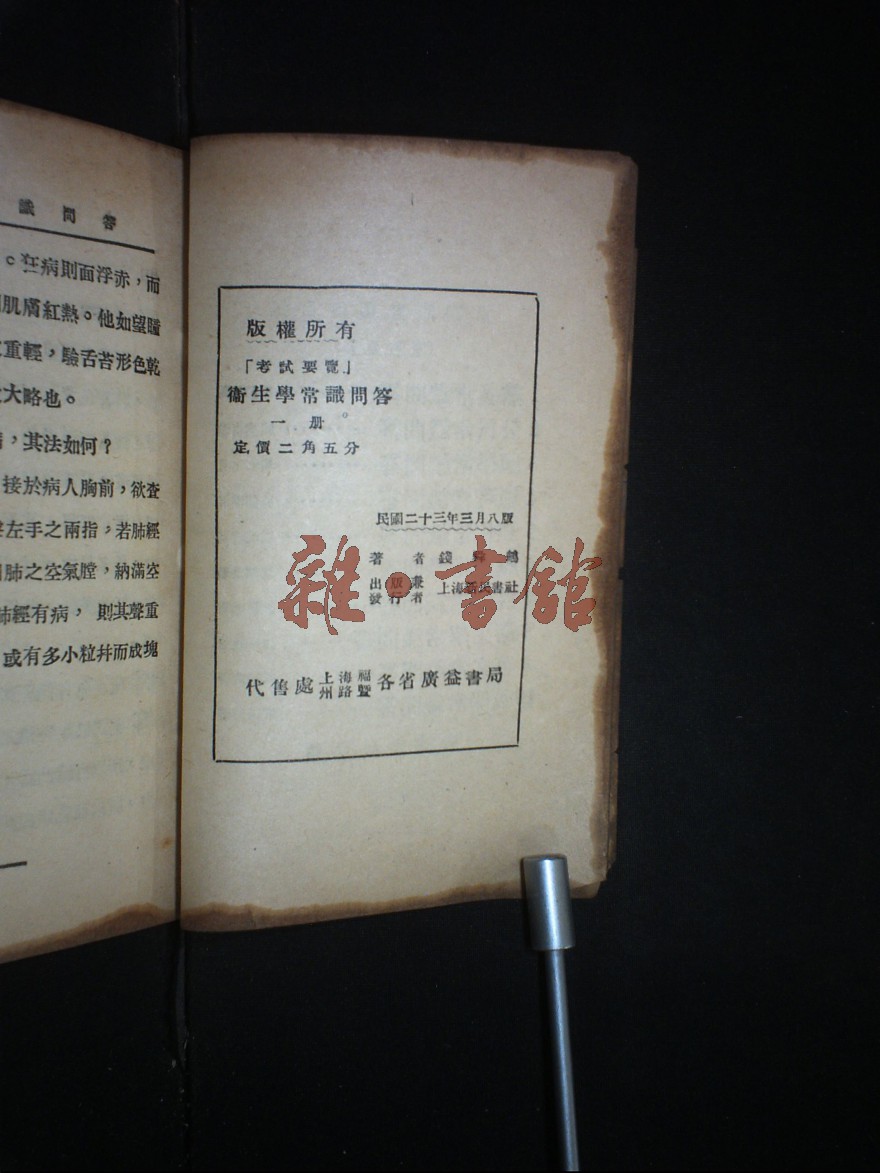 識問答
。狂病則面浮赤，而
肌膚紅熱。他如望瞳
重輕，驗舌苔形色乾
大略也。
，其法如何？
接於病人胸前，欲查
左手之兩指，若肺經
肺之空氣膛，納滿空
肺經有病，則其聲重
或有多小粒幷而成塊
版權所有
「考試要覽」
衛生學常識問答
一册。
定價二角五分
民國二十三年三月八版
著者 錢
出版兼發行者 上海 書社
代售處 上海福州路曁各省廣益書局
雜·書館